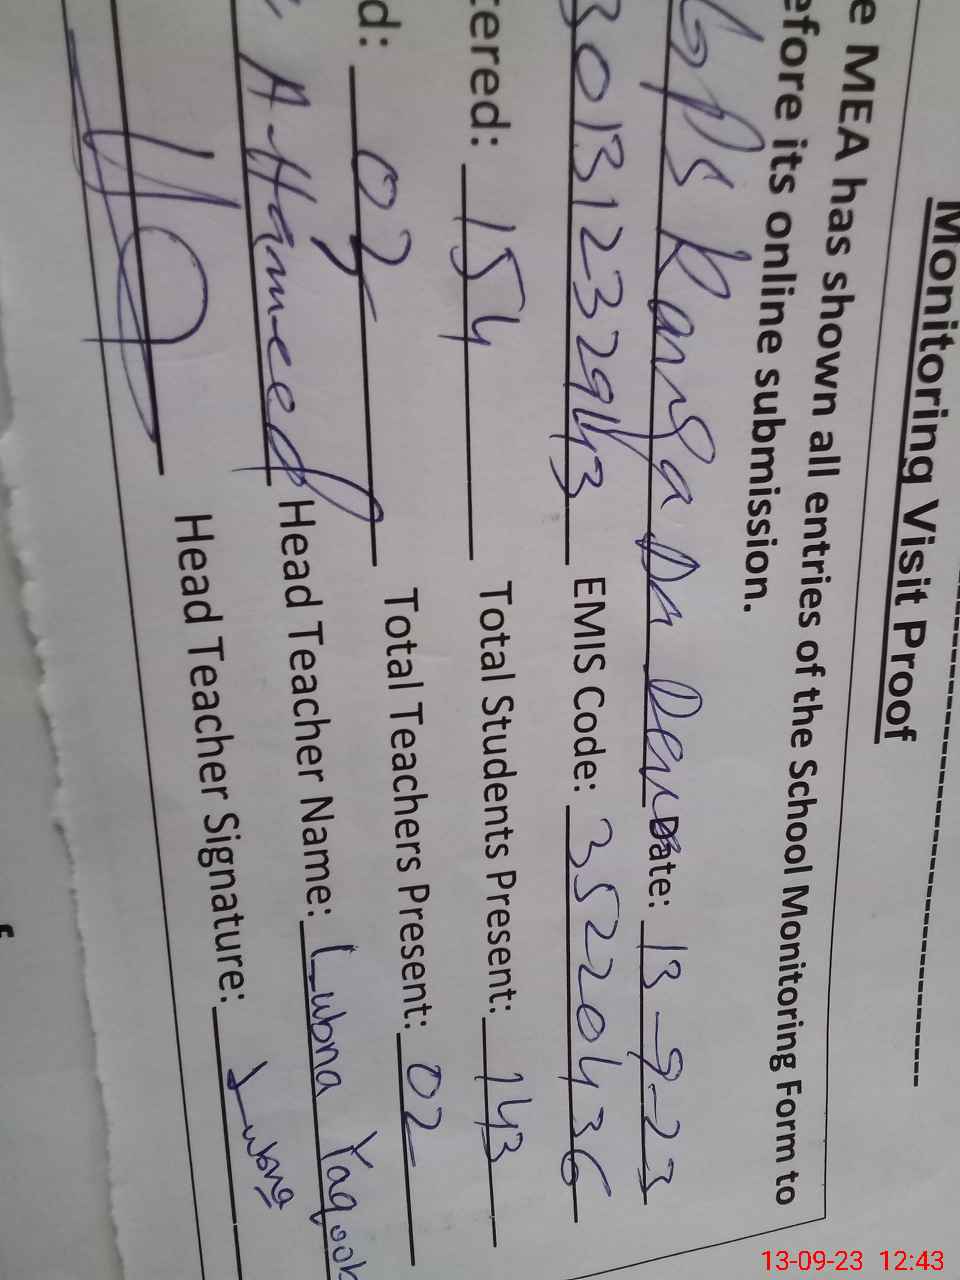 Monitoring Visit Proof
e MEA has shown all entries of the School Monitoring Form to
efore its online submission.
GPS Ranga Date: 13-9-23
EMIS Code: 35220436
tered: 154 Total Students Present: 143
d: 02 Total Teachers Present: 02
A. Hameed Head Teacher Name: Lubna Yaqoob
Head Teacher Signature: Lubna
13-09-23 12:43